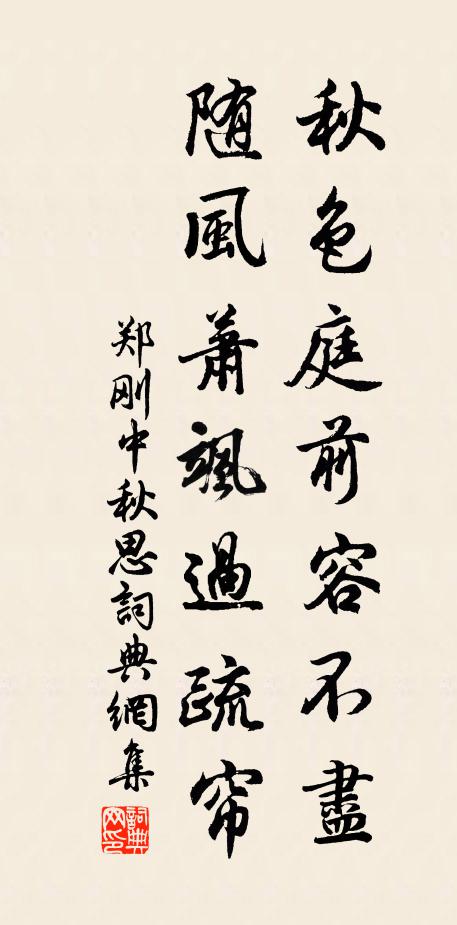 秋色庭前容不盡
随風蕭颯過疏帘
郑刚中秋思詞典網集
詞典网印